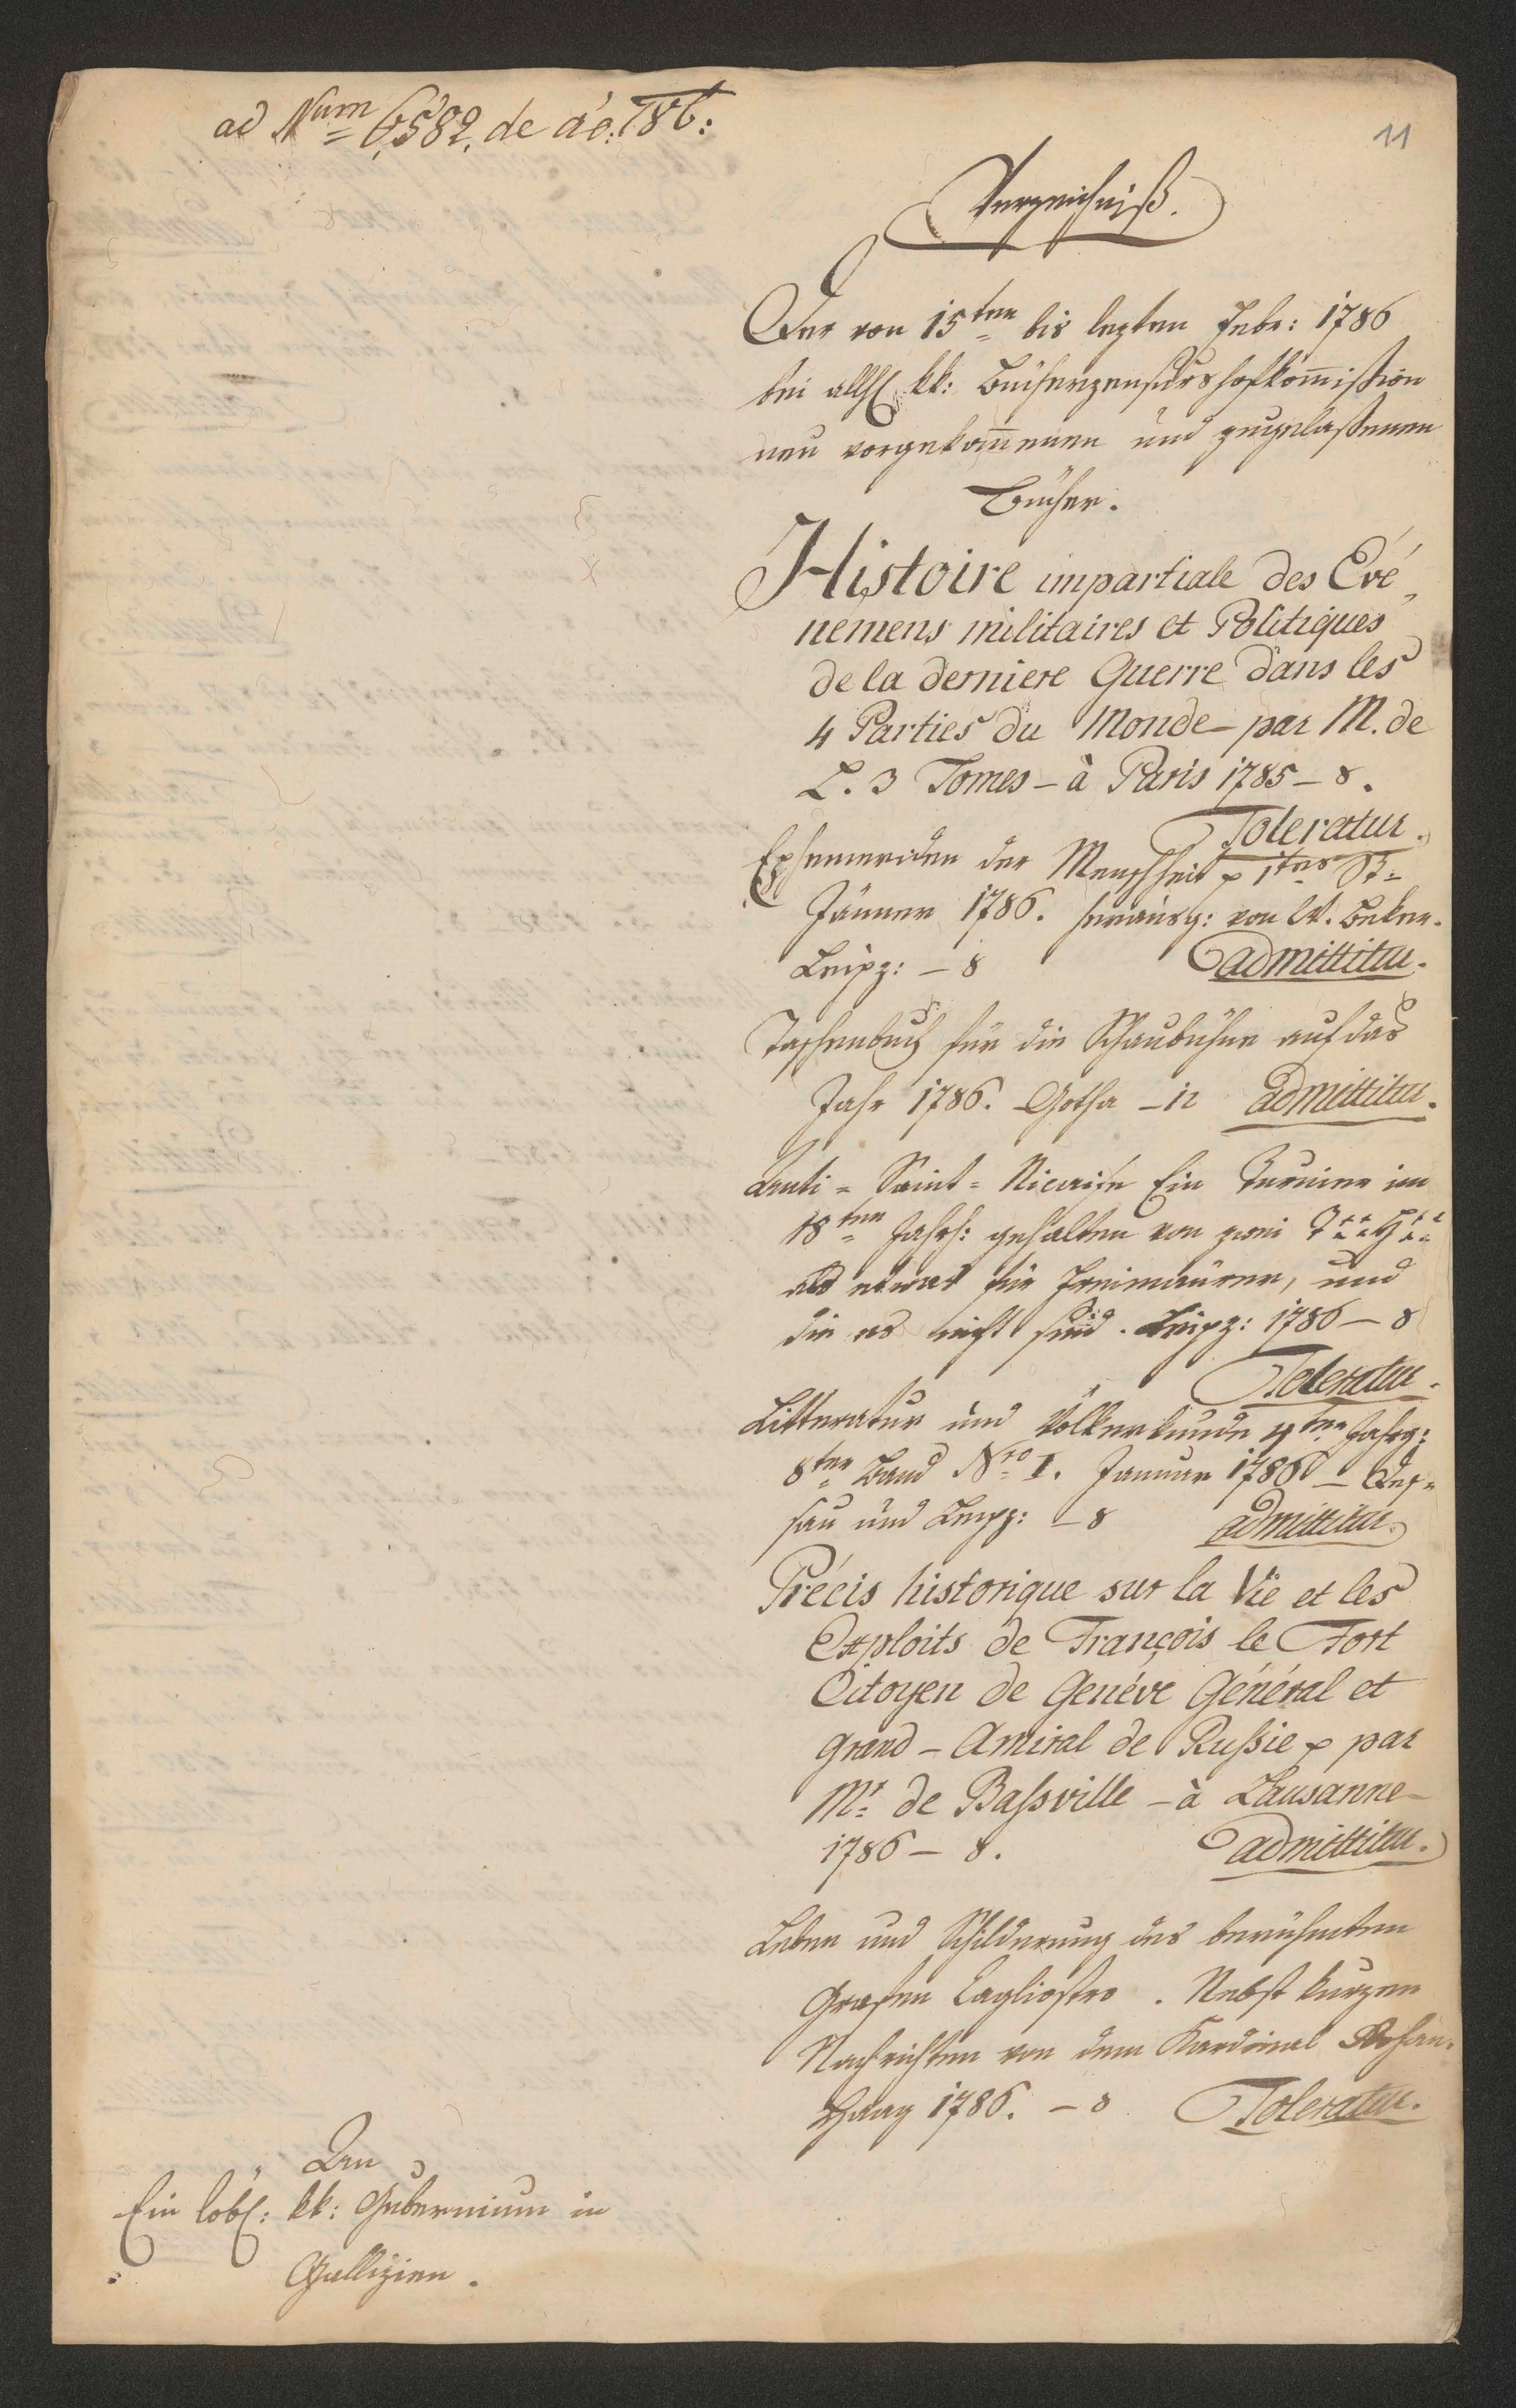 ad Num 6582. de ao: 786:
11
Verzeichniß.
Der von 15ten bis lezten Febr: 1786
bei allh kk: Bücherzensurs hofkom̄ißion
neu vorgekom̄enen und zugelaßenen
Bücher.
Histoire impartiale des Evé,
nemens militaires et Politiques
de la derniere Guerre dans les
4 Parties du Monde – par M. de
L. 3 Tomes – à Paris 1785 – 8.
Toleratur.
Ephemeriden der Menschheit 1tes St:
Jänner 1786. herausg: von W. Beker.
Leipz: – 8 admittitur.
Taschenbuch für die Schaubühne auf das
Jahr 1786. Gotha – 12 admittitur.
Anti = Saint = Nicaise Ein Turnier im
18ten Jahrh: gehalten von zwei T*** H***
als etwas für Freimaurer, und
die es nicht sind. Leipz: 1786 – 8
Toleratur.
Litteratur und Völkerkunde 4ter Jahrg:
8ter Band Nro I. Januar 1786 – Des=
sau und Leipz: – 8 admittitur.
Précis historique sur la Vie et les
Exploits de François le Fort
Citoyen de Genéve Général et
grand – Amiral de Rußie par
Mr: de Baſsville – à Lausanne –
1786 – 8. admittitur.
Leben und Schilderung des berühmten
Grafen Cagliostro. Nebst kurzen
Nachrichten von dem Kardinal Rohan.
Haag 1786. – 8 Toleratur.
An
Ein löbl: kk: Gubernium in
Gallizien.